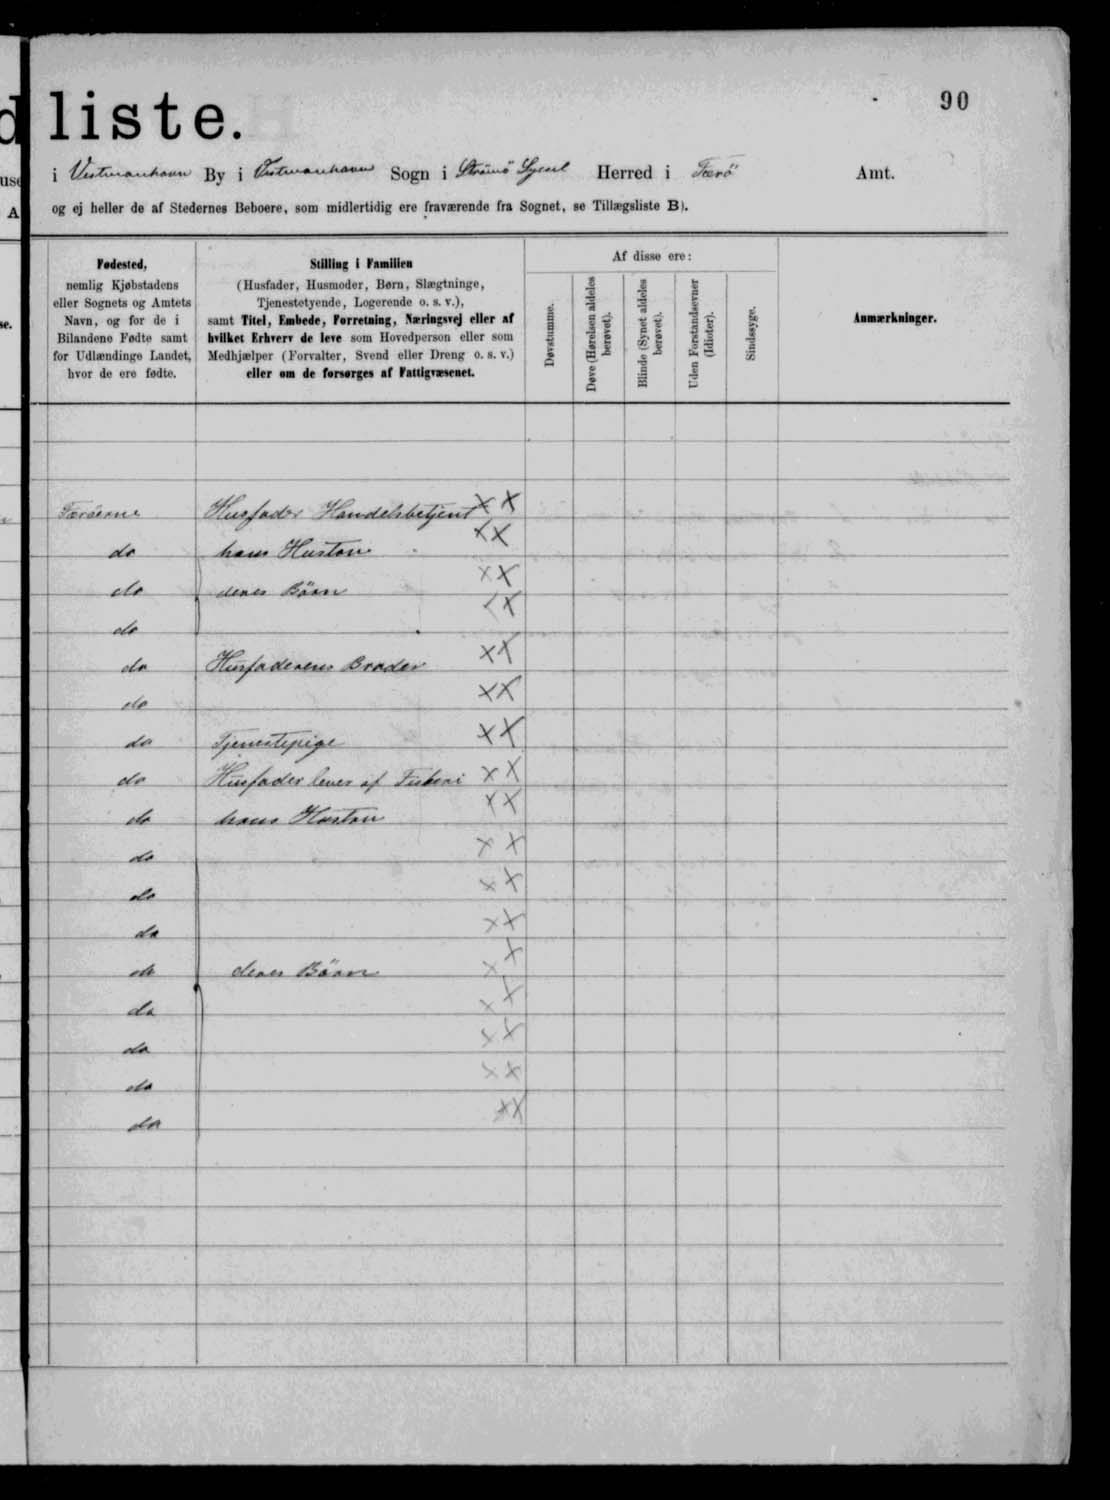 90
d liste.
i Vestmanhavn By i Vestmanhavn Sogn i Strömö Syssel Herred i Færö Amt.
og ej heller de af Stedernes Beboere, som midlertidig ere fraværende fra Sognet, se Tillægsliste B).
Fødested,
nemlig Kjøbstadens
eller Sognets og Amtets
Navn, og for de i
Bilandene Fødte samt
for Udlændinge Landet,
hvor de ere fødte.
Stilling i Familien
(Husfader, Husmoder, Børn, Slægtninge,
Tjenestetyende, Logerende o. s. v.),
samt Titel, Embede, Forretning, Næringsvej eller af
hvilket Erhverv de leve som Hovedperson eller som
Medhjælper (Forvalter, Svend eller Dreng o. s. v.)
eller om de forsørges af Fattigvæsenet.
Af disse ere:
Døvstumme.
Døve (Hørelsen aldeles
berøvet).
Blinde (Synet aldeles
berøvet).
Uden Forstandsevner
(Idioter).
Sindssyge.
Anmærkninger.
Færöerne Husfader Handelsbetjent x x
do hans Hustru x x
do deres Börn x x
do x x
do Husfaderens Broder x x
do x x
do Tjenestepige x x
do Husfader lever af Fiskeri x x
do hans Hustru x x
do x x
do x x
do x x
do deres Börn x x
do x x
do x x
do x x
do x x